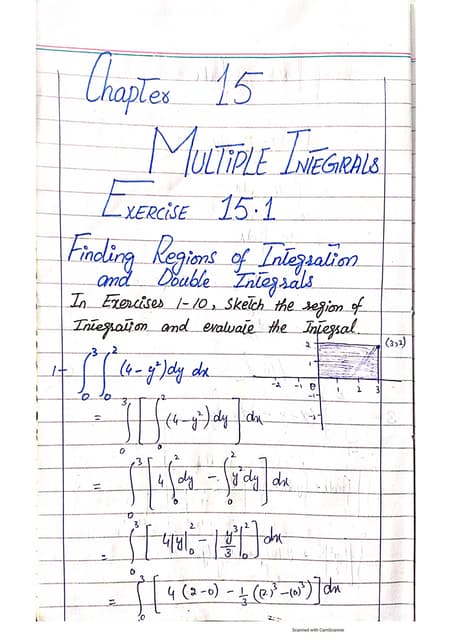 Chapter 15
MULTIPLE INTEGRALS
EXERCISE 15.1
Finding Regions of Integration
and Double Integrals
In Exercises 1-10, Sketch the region of
Integration and evaluate the Integral.
2 (3,2)
1
-2 -1 0 1 2 3
-1
1- ∫₀³ ∫₀² (4-y²)dy dx
= ∫₀³ [ ∫₀² (4-y²) dy ] dx
= ∫₀³ [ 4∫₀² dy - ∫₀² y² dy ] dx
= ∫₀³ [ 4|y|₀² - |y³/3|₀² ] dx
= ∫₀³ [ 4 (2-0) - 1/3 ((2)³-(0)³) ] dx
Scanned with CamScanner